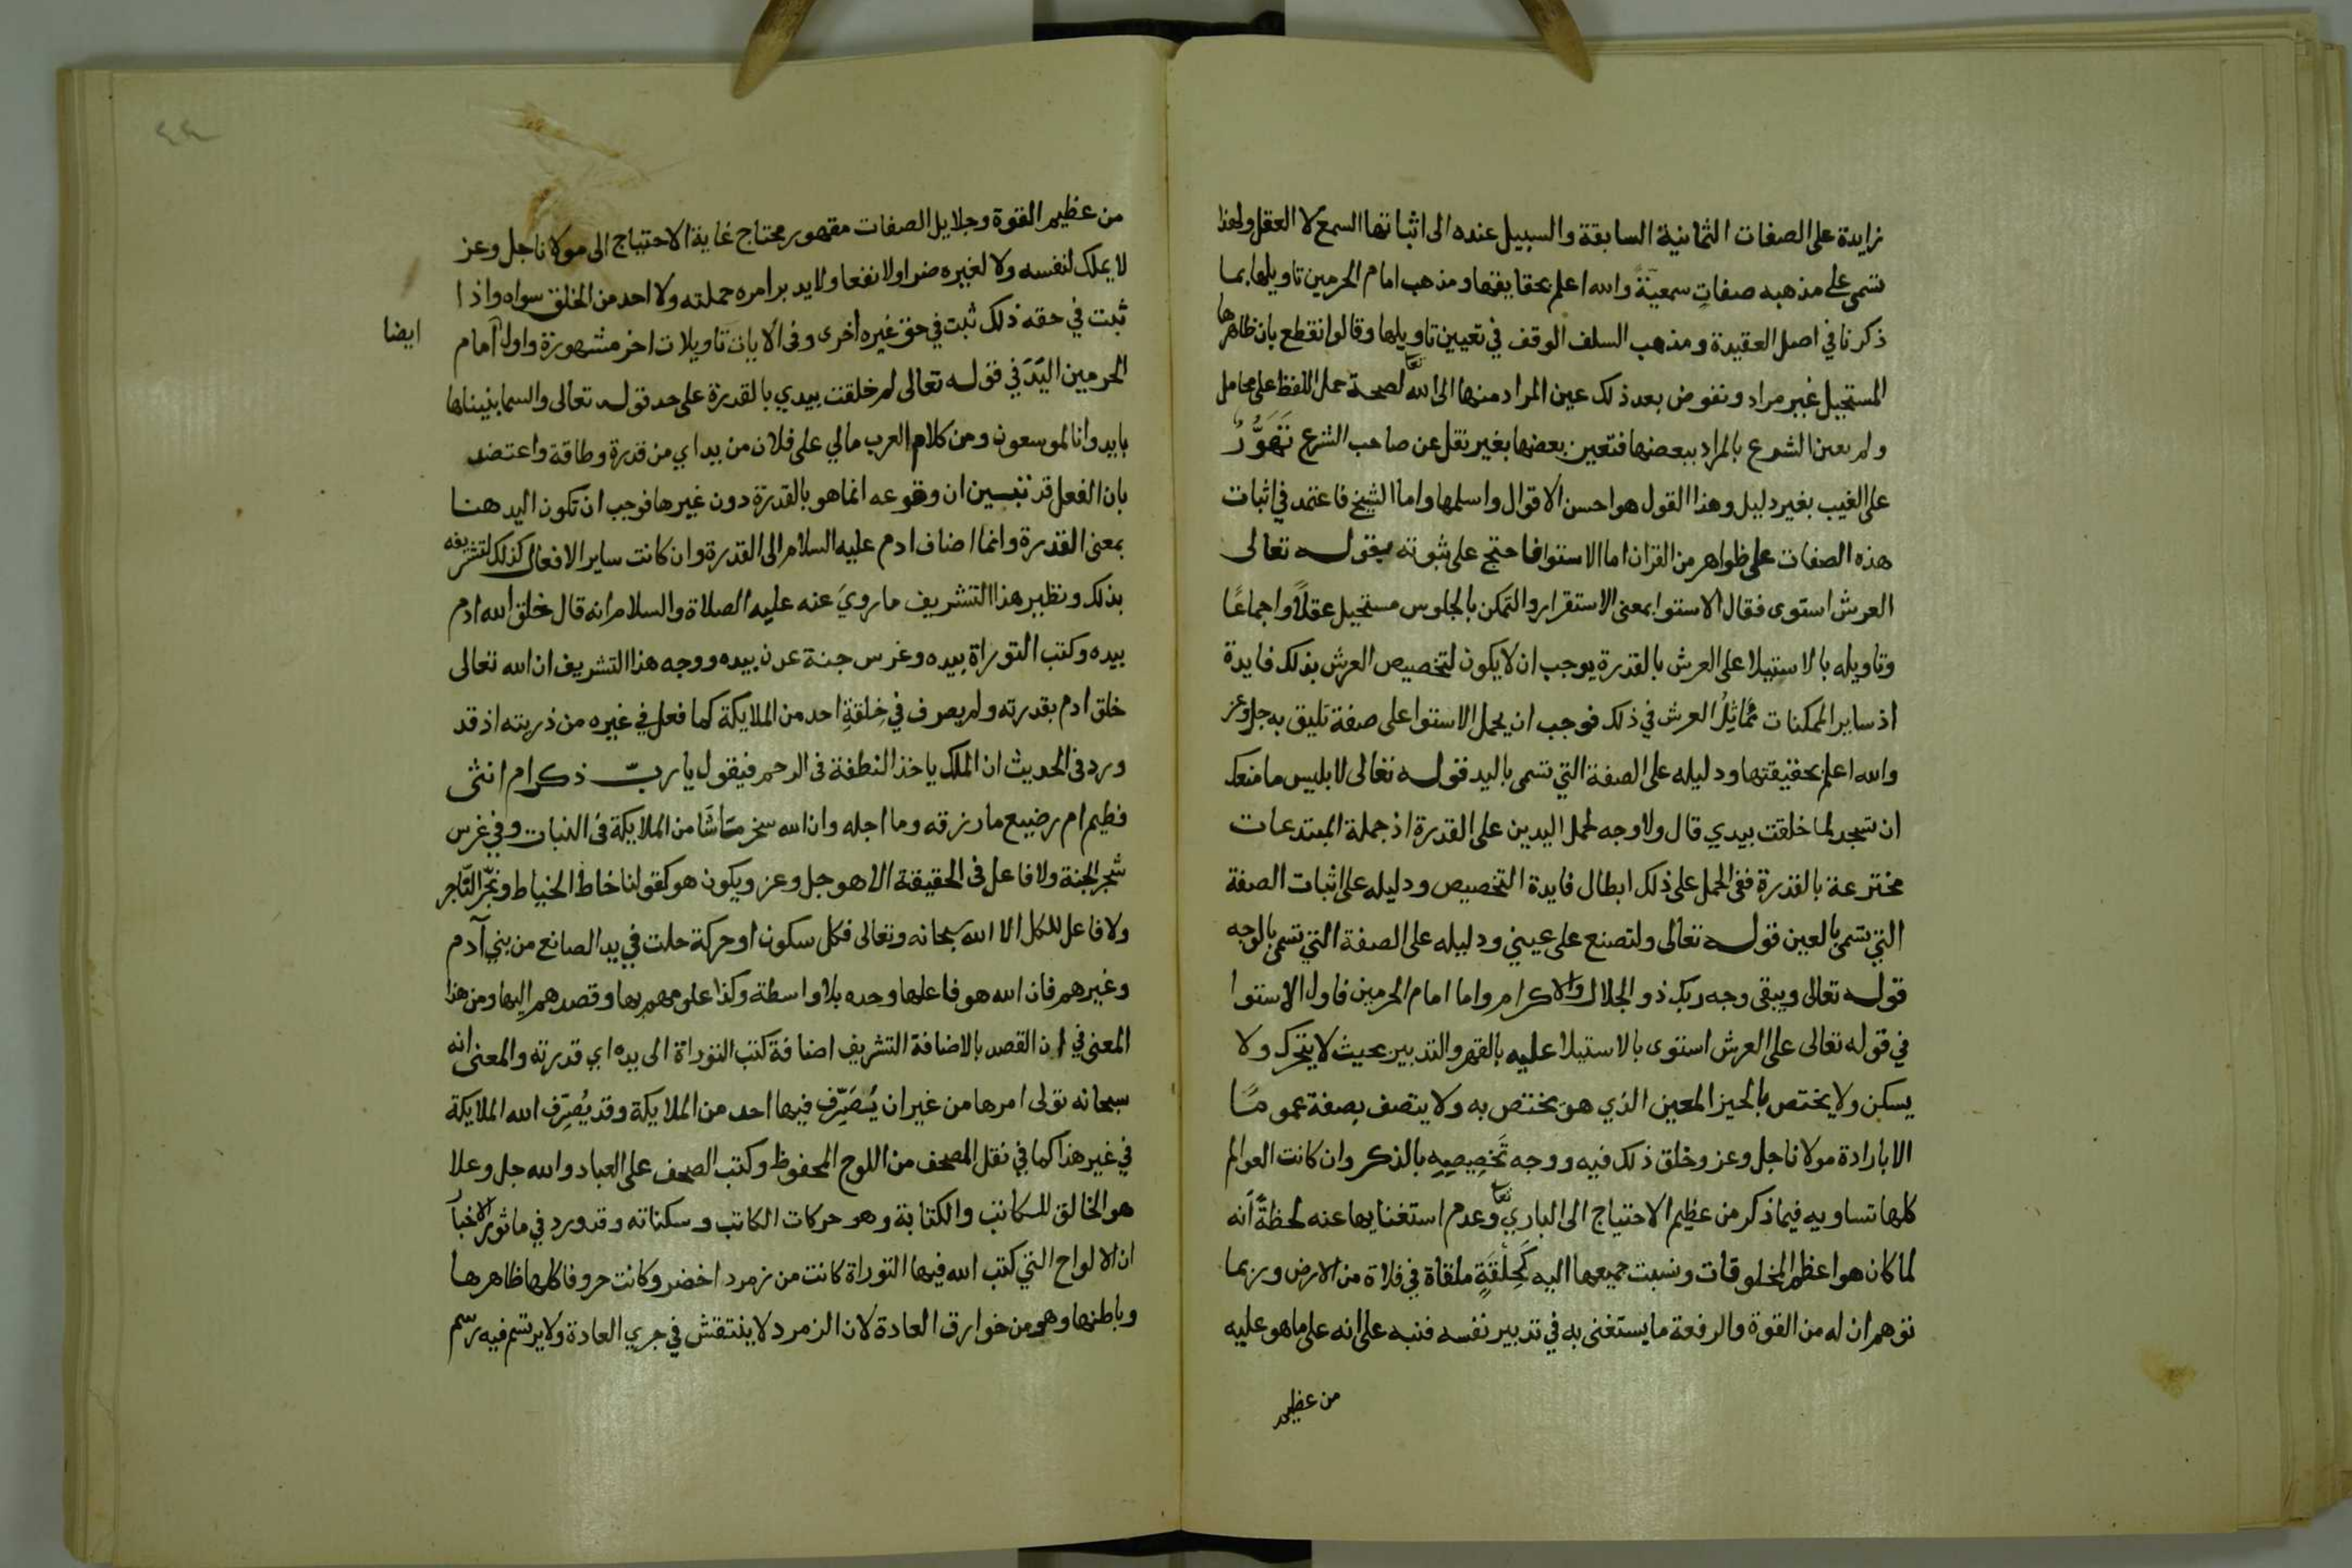 زايدة على الصفات الثمانية السابقة والسبيل عنده الى اثباتها السمع لا العقل ولهذا
تسمى على مذهبه صفات سمعية والله اعلم بحقايقها ومذهب امام الحرمين تاويلها بما
ذكرنا في اصل العقيدة ومذهب السلف الوقف في تعيين تاويلها وقالوا نقطع بان ظاهرها
المستحيل غير مراد ونفوض بعد ذلك عين المراد منها الى الله تعا لصحة حمل اللفظ على محامل
ولم يعين الشرع بالمراد ببعضها فتعين بعضها بغير نقل عن صاحب الشرع تَهَوُّرٌ
على الغيب بغير دليل وهذا القول هو احسن الاقوال واسلمها واما الشيخ فاعتمد في اثبات
هذه الصفات على ظواهر من القران اما الاستوا فاحتج على ثبوته بقوله تعالى
العرش استوى فقال الاستوا بمعنى الاستقرار والتمكن بالجلوس مستحيل عقلاً واجماعًا
وتاويله بالاستيلا على العرش بالقدرة يوجب ان لا يكون لتخصيص العرش بذلك فايدة
اذ ساير الممكنات تُماثِلُ العرش في ذلك فوجب ان يحمل الاستوا على صفة تليق به جل وعز
والله اعلم بحقيقتها ودليله على الصفة التي تسمى باليد قوله تعالى لابليس ما منعك
ان تسجد لما خلقت بيدي قال ولا وجه لحمل اليدين على القدرة اذ جملة المبتدعات
مخترعة بالقدرة ففي الحمل على ذلك ابطال فايدة التخصيص ودليله على اثبات الصفة
التي تسمى بالعين قوله تعالى ولتصنع على عيني ودليله على الصفة التي تسمى بالوجه
قوله تعالى ويبقى وجه ربك ذو الجلال والاكرام واما امام الحرمين فاول الاستوا
في قوله تعالى على العرش استوى بالاستيلا عليه بالقهر والتدبير بحيث لا يتحرك ولا
يسكن ولا يختص بالحيز المعين الذي هو مختص به ولا يتصف بصفة عمومًا
الا بارادة مولانا جل وعز وخلق ذلك فيه ووجه تَخصِيصِهِ بالذكر وان كانت العوالم
كلها تساويه فيما ذكر من عظيم الاحتياج الى الباري تعا وعدم استغنايها عنه لحظةً انه
لما كان هو اعظم المخلوقات ونسبت جميعها اليه كَحِلْقَةٍ ملقاة في فلاة من الارض وربما
توهم ان له من القوة والرفعة ما يستغنى به في تدبير نفسه فنبه على انه على ما هو عليه
من عظيم
من عظيم القوة وجلايل الصفات مقهور محتاج غاية الاحتياج الى مولانا جل وعز
لا يملك لنفسه ولا لغيره ضرا ولا نفعا ولا يدبر امره جملته ولا احد من الخلق سواه واذا
ثبت في حقه ذلك ثبت في حق غيره اخرى وفى الايات تاويلات اخر مشهورة واول امام
ايضا
الحرمين اليَدَ في قوله تعالى لم خلقت بيدي بالقدرة على حد قوله تعالى والسما بنيناها
بايد وانا لموسعون ومن كلام العرب مالي على فلان من يد اي من قدرة وطاقة واعتضد
بان الفعل قد تبين ان وقوعه انما هو بالقدرة دون غيرها فوجب ان تكون اليد هنا
بمعنى القدرة وانما اضاف ادم عليه السلام الى القدرة وان كانت ساير الافعال كذلك لتشريفه
بذلك ونظير هذا التشريف ما رويَ عنه عليه الصلاة والسلام انه قال خلق الله ادم
بيده وكتب التوراة بيده وغرس جنة عدن بيده ووجه هذا التشريف ان الله تعالى
خلق ادم بقدرته ولم يصرف في خِلقةِ احد من الملايكة كما فعل في غيره من ذريته اذ قد
ورد فى الحديث ان الملك ياخذ النطفة فى الرحم فيقول يا ربّ ذكر ام انثى
فطيم ام رضيع ما رزقه وما اجله وان الله سخر من شا من الملايكة فى النبات وفي غرس
شجر الجنة ولا فاعل فى الحقيقة الا هو جل وعز ويكون هو كقولنا خاط الخياط ونجّر النّاجر
ولا فاعل للكل الا الله سبحانه وتعالى فكل سكون او حركة حلت في يد الصانع من بني آدم
وغيرهم فان الله هو فاعلها وحده بلا واسطة وكذا علومهم بها وقصدهم اليها ومن هذا
المعنى في ان القصد بالاضافة التشريف اضافة كتب التوراة الى يده اي قدرته والمعنى انه
سبحانه تولى امرها من غير ان يُتصَرِّف فيها احد من الملايكة وقد يُصَرِّف الله الملايكة
في غير هذا كما في نقل المصحف من اللوح المحفوظ وكتب الصحف على العباد والله جل وعلا
هو الخالق للكاتب والكتابة وهو حركات الكاتب وسكناته وقد ورد في ماثور الاخبار
ان الالواح التي كتب الله فيها التوراة كانت من زمرد اخضر وكانت حروفا كلها ظاهرها
وباطنها وهو من خوارق العادة لان الزمرد لا ينتقش في جري العادة ولا يرتسم فيه رسم